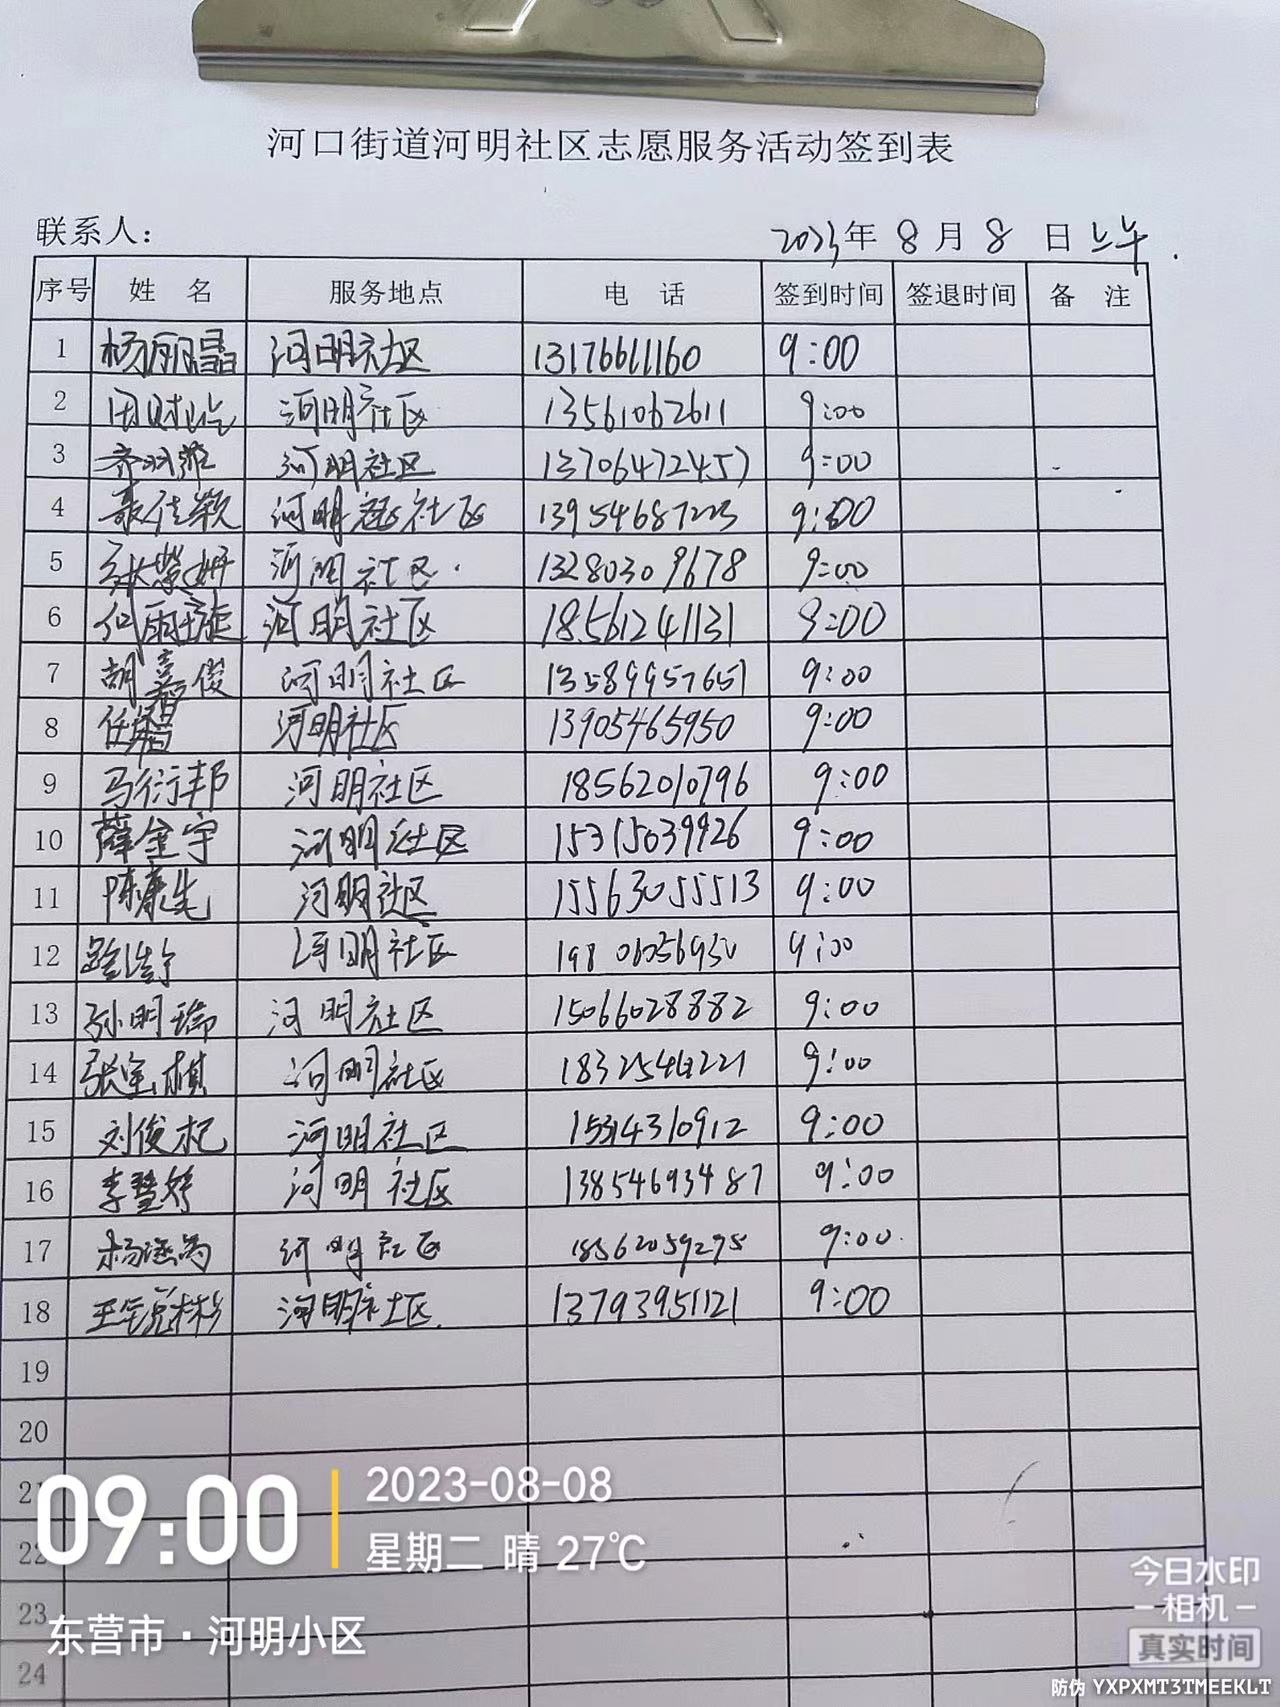 河口街道河明社区志愿服务活动签到表
联系人：
2023年 8 月 8 日 上午
序号 姓 名 服务地点 电 话 签到时间 签退时间 备 注
1 杨丽晶 河明社区 13176611160 9:00
2 河明社区 13561062611 9:00
3 河明社区 13706472457 9:00
4 聂佳颖 河明社区 13954687223 9:00
5 河明社区 13280309678 9:00
6 何雨璇 河明社区 18561241131 9:00
7 胡嘉俊 河明社区 13589957651 9:00
8 河明社区 13905465950 9:00
9 马衍邦 河明社区 18562010796 9:00
10 薛金宇 河明社区 15315039926 9:00
11 陈康先 河明社区 15563055513 9:00
12 河明社区 9:00
13 孙明瑞 河明社区 15066028882 9:00
14 河明社区 9:00
15 刘俊杞 河明社区 9:00
16 李慧婷 河明社区 13854693487 9:00
17 河明社区 18562059295 9:00
18 河明社区 13793951121 9:00
19
20
21
22
23
24
09:00
2023-08-08
星期二 晴 27℃
东营市·河明小区
今日水印
相机
真实时间
防伪 YXPXMT3TMEEKLT